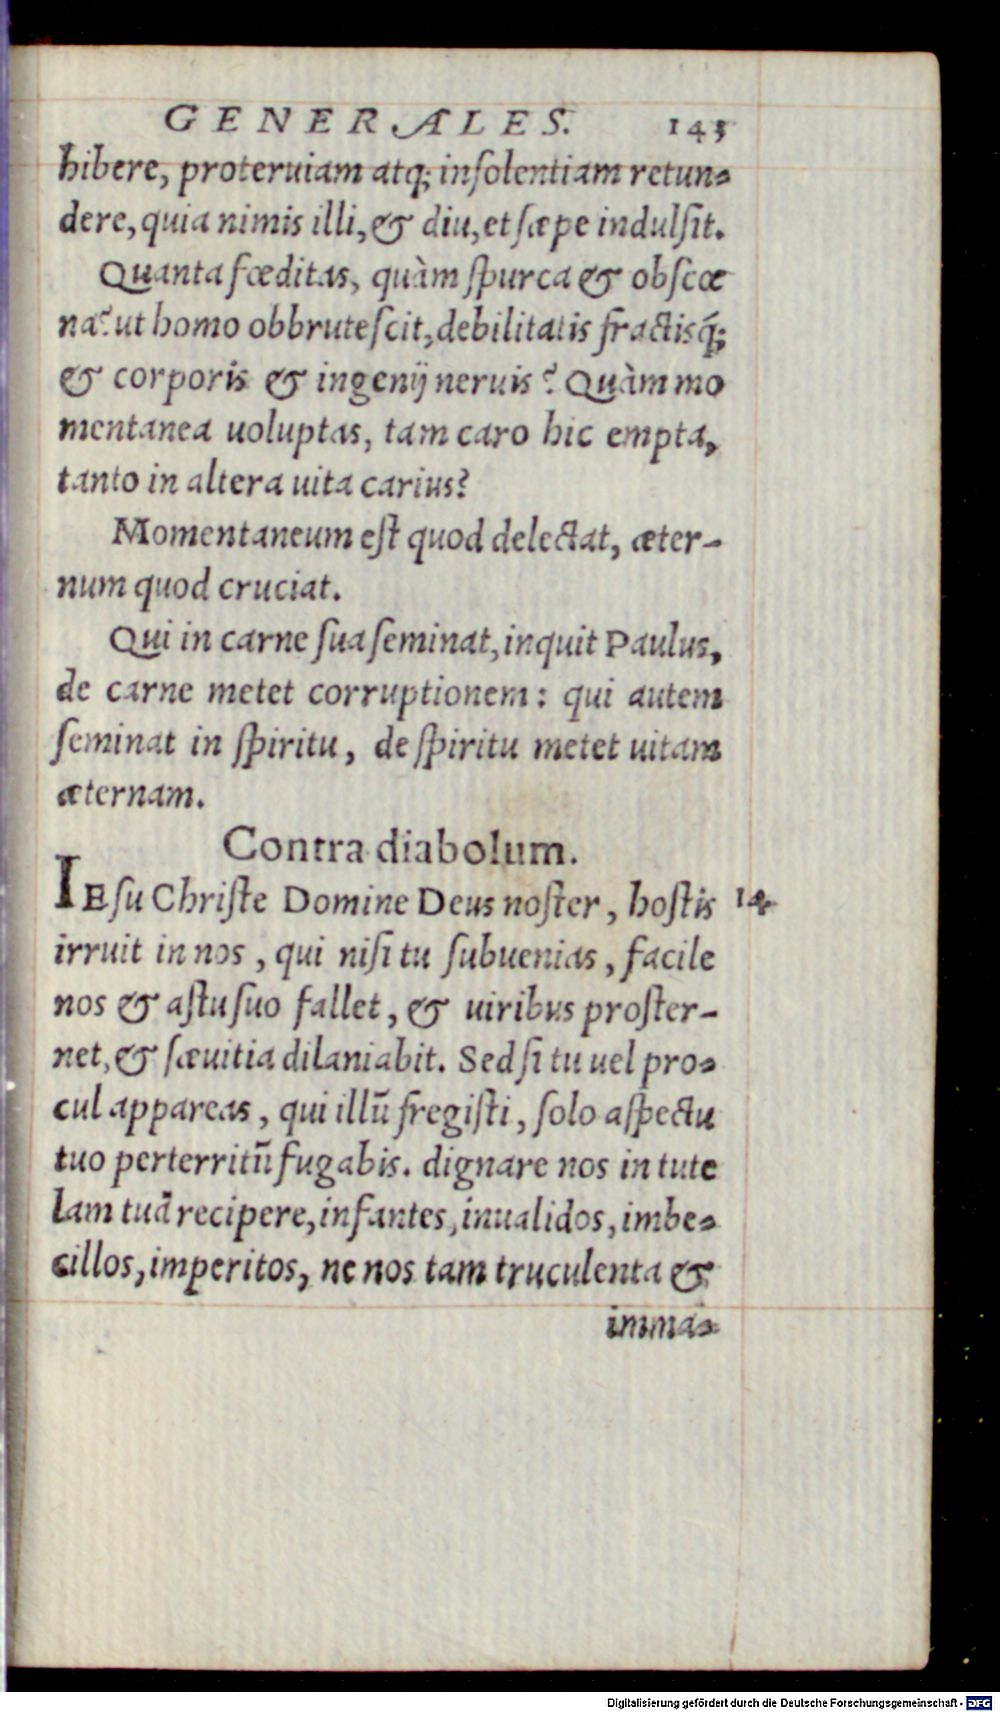 GENERALES. 143
hibere, proteruiam atq; inſolentiam retun-
dere, quia nimis illi, & diu, et ſæpe indulſit.
Quanta fœditas, quàm ſpurca & obſcœ
na? ut homo obbruteſcit, debilitatis fractisq́;
& corporis & ingenij neruis? Quàm mo
mentanea uoluptas, tam caro hic empta,
tanto in altera uita carius?
Momentaneum eſt quod delectat, æter-
num quod cruciat.
Qui in carne ſua ſeminat, inquit Paulus,
de carne metet corruptionem: qui autem
ſeminat in ſpiritu, de ſpiritu metet uitam
æternam.
Contra diabolum.
IEſu Chriſte Domine Deus noſter, hoſtis 14
irruit in nos, qui niſi tu ſubuenias, facile
nos & aſtu ſuo fallet, & uiribus proſter-
net, & ſæuitia dilaniabit. Sed ſi tu uel pro-
cul appareas, qui illũ fregiſti, ſolo aſpectu
tuo perterritũ fugabis. dignare nos in tute
lam tuã recipere, infantes, inualidos, imbe-
cillos, imperitos, ne nos tam truculenta &
imma-
Digitalisierung gefördert durch die Deutsche Forschungsgemeinschaft - DFG